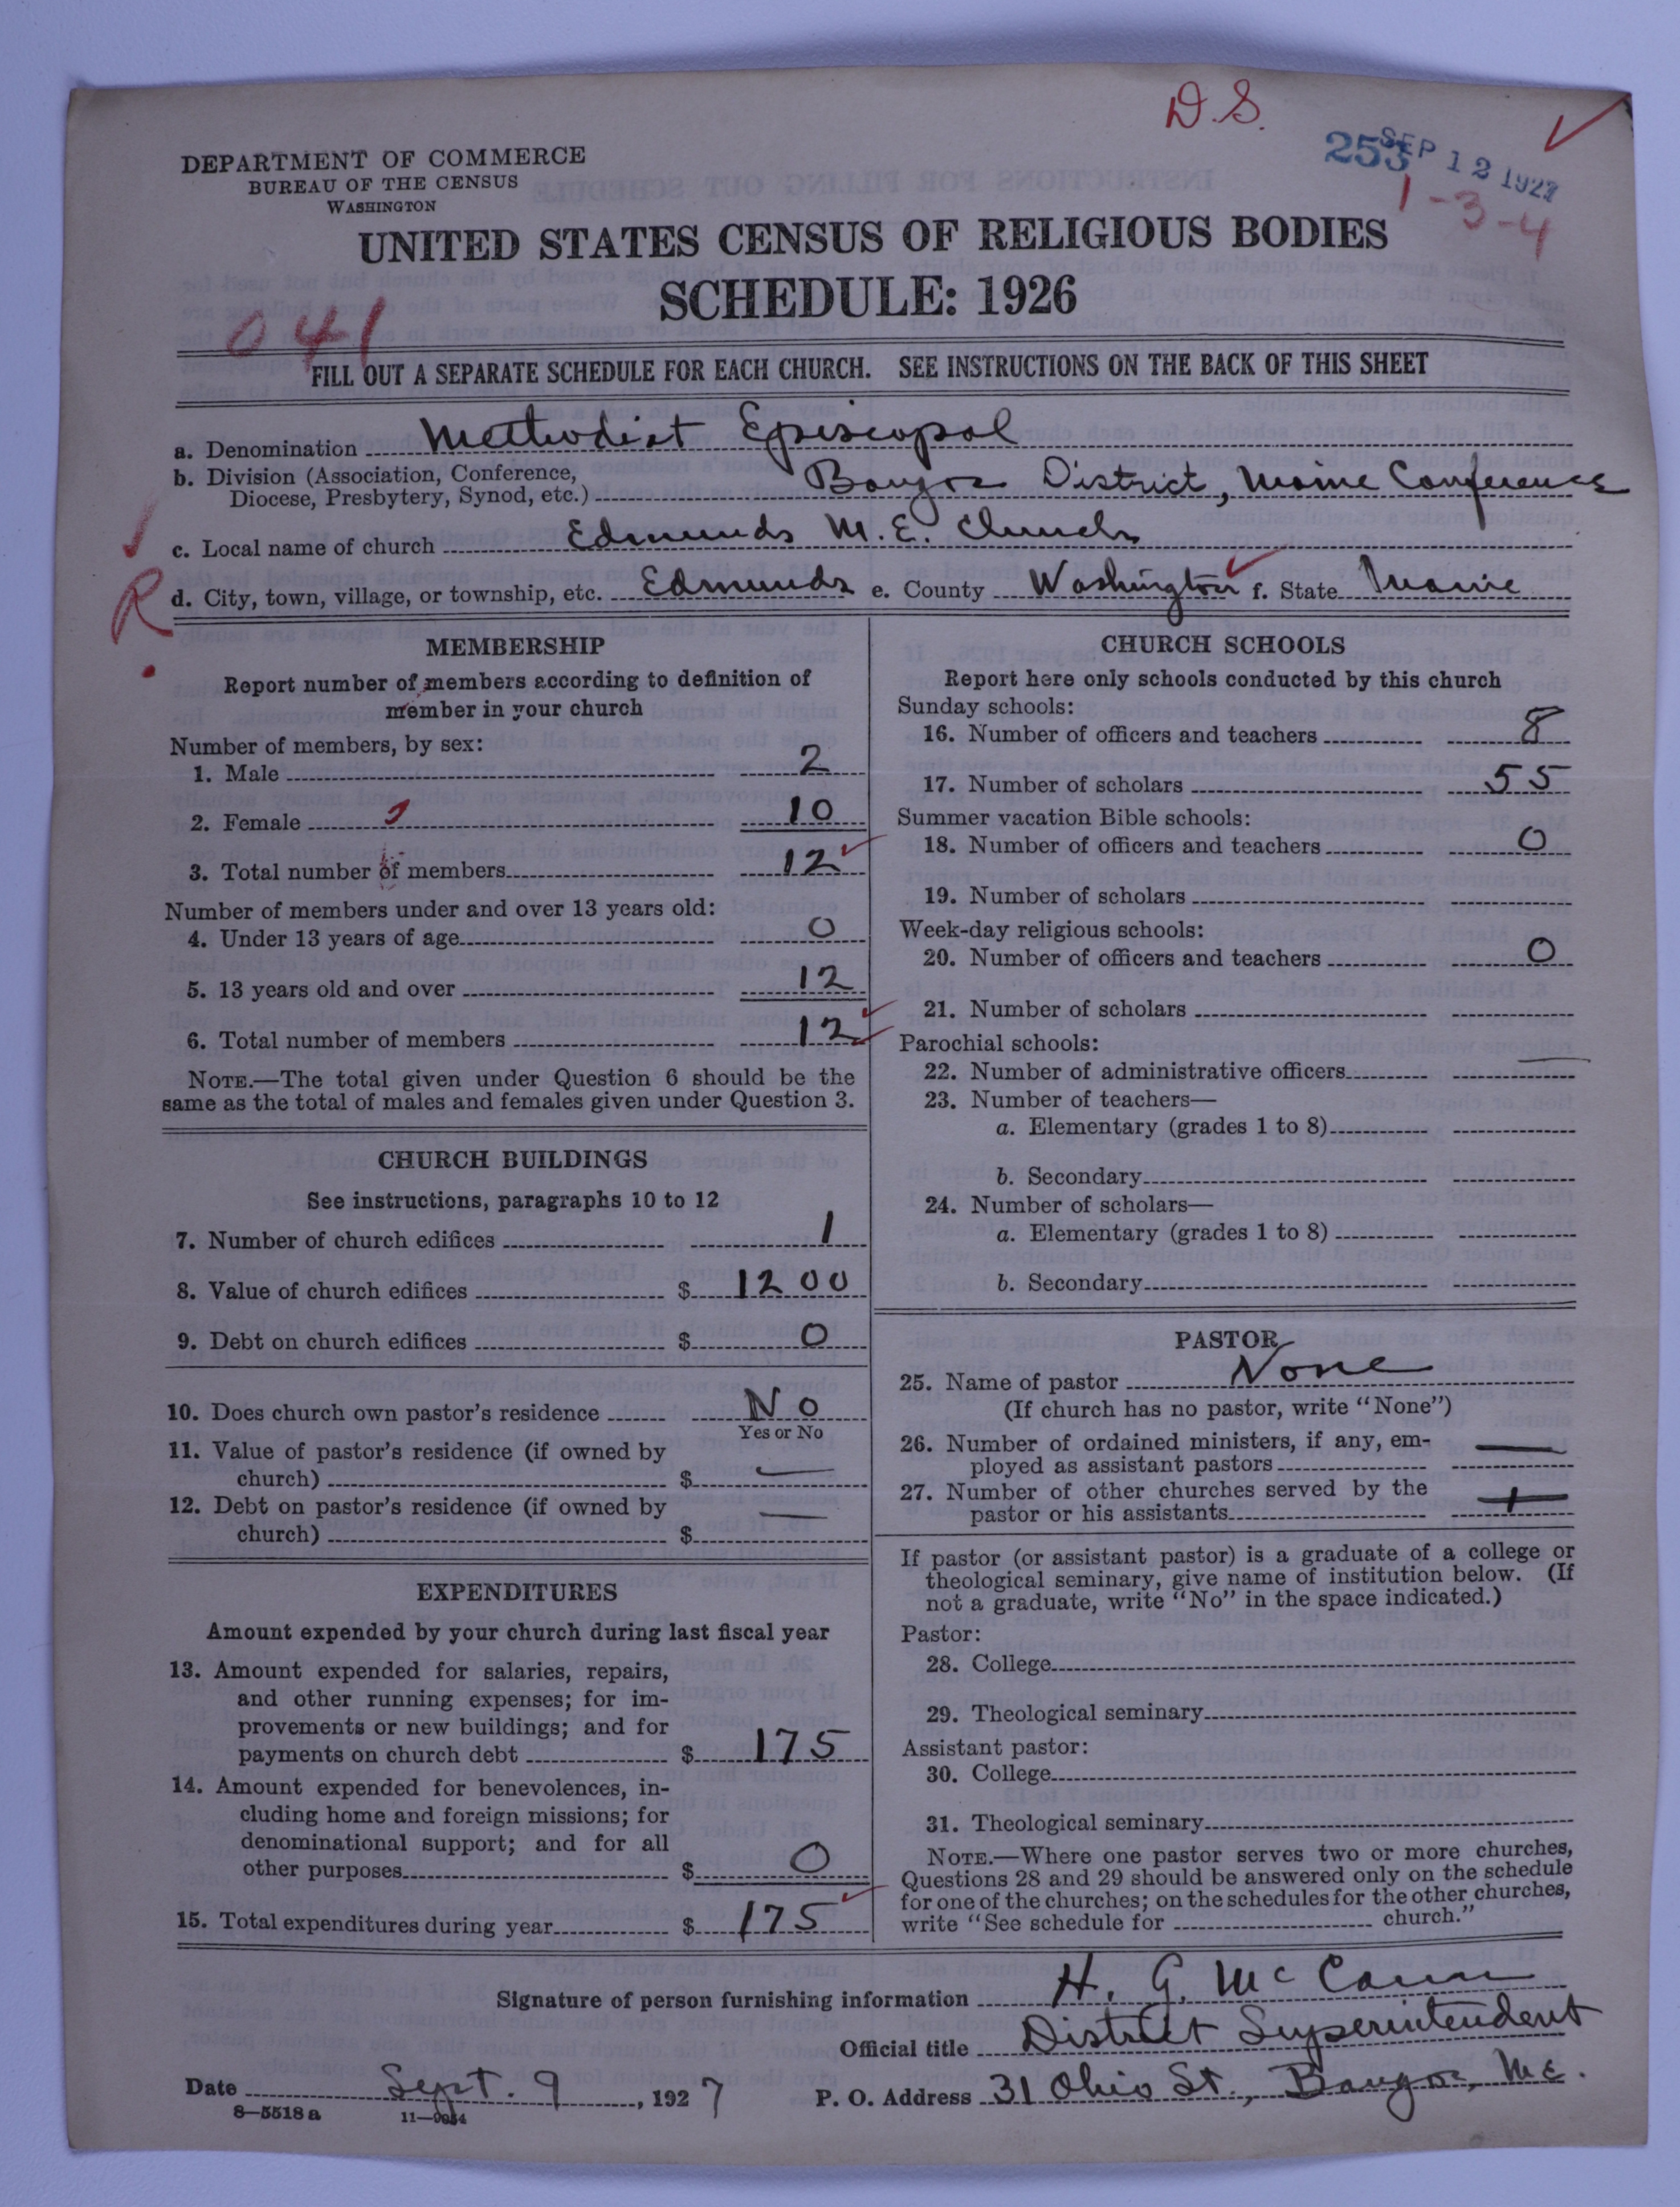 D.S.
253
SEP 12 1927
1-3-4
DEPARTMENT OF COMMERCE
BUREAU OF THE CENSUS
WASHINGTON
UNITED STATES CENSUS OF RELIGIOUS BODIES
SCHEDULE: 1926
041
FILL OUT A SEPARATE SCHEDULE FOR EACH CHURCH. SEE INSTRUCTIONS ON THE BACK OF THIS SHEET
a. Denomination Methodist Episcopal
b. Division (Association, Conference,
Diocese, Presbytery, Synod, etc.) Bangor District, Maine Conference
c. Local name of church Edmunds M.E. Church
R.
d. City, town, village, or township, etc. Edmunds e. County Washington f. State Maine
MEMBERSHIP
Report number of members according to definition of
member in your church
Number of members, by sex:
1. Male 2
2. Female 10
3. Total number of members 12
Number of members under and over 13 years old:
4. Under 13 years of age 0
5. 13 years old and over 12
6. Total number of members 12
NOTE.—The total given under Question 6 should be the
same as the total of males and females given under Question 3.
CHURCH BUILDINGS
See instructions, paragraphs 10 to 12
7. Number of church edifices 1
8. Value of church edifices $ 1200
9. Debt on church edifices $ 0
10. Does church own pastor's residence No
Yes or No
11. Value of pastor's residence (if owned by
church) $ —
12. Debt on pastor's residence (if owned by
church) $ —
EXPENDITURES
Amount expended by your church during last fiscal year
13. Amount expended for salaries, repairs,
and other running expenses; for im-
provements or new buildings; and for
payments on church debt $ 175
14. Amount expended for benevolences, in-
cluding home and foreign missions; for
denominational support; and for all
other purposes $ 0
15. Total expenditures during year $ 175
CHURCH SCHOOLS
Report here only schools conducted by this church
Sunday schools:
16. Number of officers and teachers 8
17. Number of scholars 55
Summer vacation Bible schools:
18. Number of officers and teachers 0
19. Number of scholars
Week-day religious schools:
20. Number of officers and teachers 0
21. Number of scholars
Parochial schools:
22. Number of administrative officers —
23. Number of teachers—
a. Elementary (grades 1 to 8)
b. Secondary
24. Number of scholars—
a. Elementary (grades 1 to 8)
b. Secondary
PASTOR
25. Name of pastor None
(If church has no pastor, write "None")
26. Number of ordained ministers, if any, em-
ployed as assistant pastors —
27. Number of other churches served by the
pastor or his assistants
If pastor (or assistant pastor) is a graduate of a college or
theological seminary, give name of institution below. (If
not a graduate, write "No" in the space indicated.)
Pastor:
28. College
29. Theological seminary
Assistant pastor:
30. College
31. Theological seminary
NOTE.—Where one pastor serves two or more churches,
Questions 28 and 29 should be answered only on the schedule
for one of the churches; on the schedules for the other churches,
write "See schedule for church."
Signature of person furnishing information H. G. McCann
Official title District Superintendent
Date Sept. 9, 1927 P. O. Address 31 Ohio St., Bangor, Me.
8—5518a